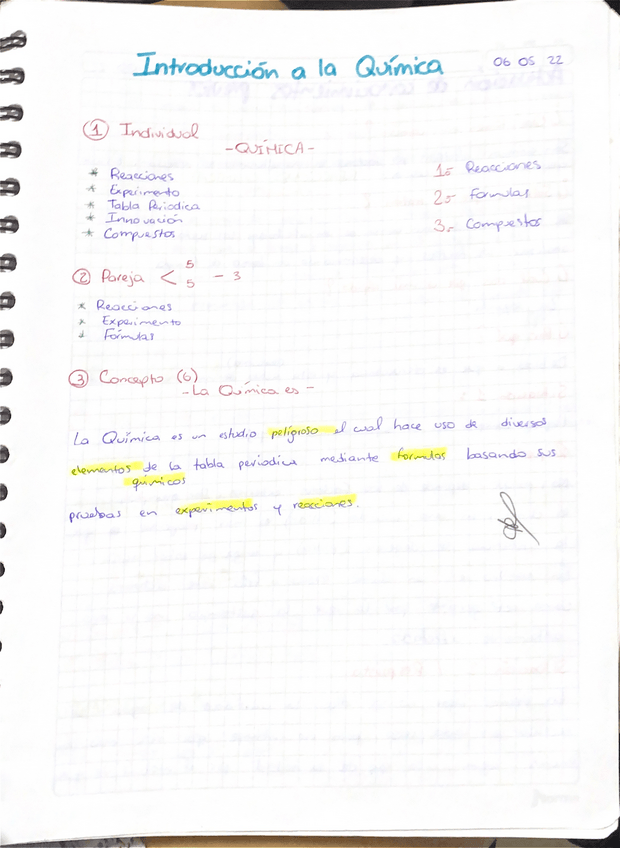 Introducción a la Química 06 05 22
① Individual
-QUÍMICA-
* Reacciones
* Experimento
* Tabla Periodica
* Innovación
* Compuestos
1.- Reacciones
2.- formulas
3.- Compuestos
② Pareja < 5 5 - 3
* Reacciones
* Experimento
* Fórmulas
③ Concepto (6)
-La Química es-
La Química es un estudio peligroso el cual hace uso de diversos
elementos de la tabla periodica mediante formulas basando sus
químicos
pruebas en experimentos y reacciones.